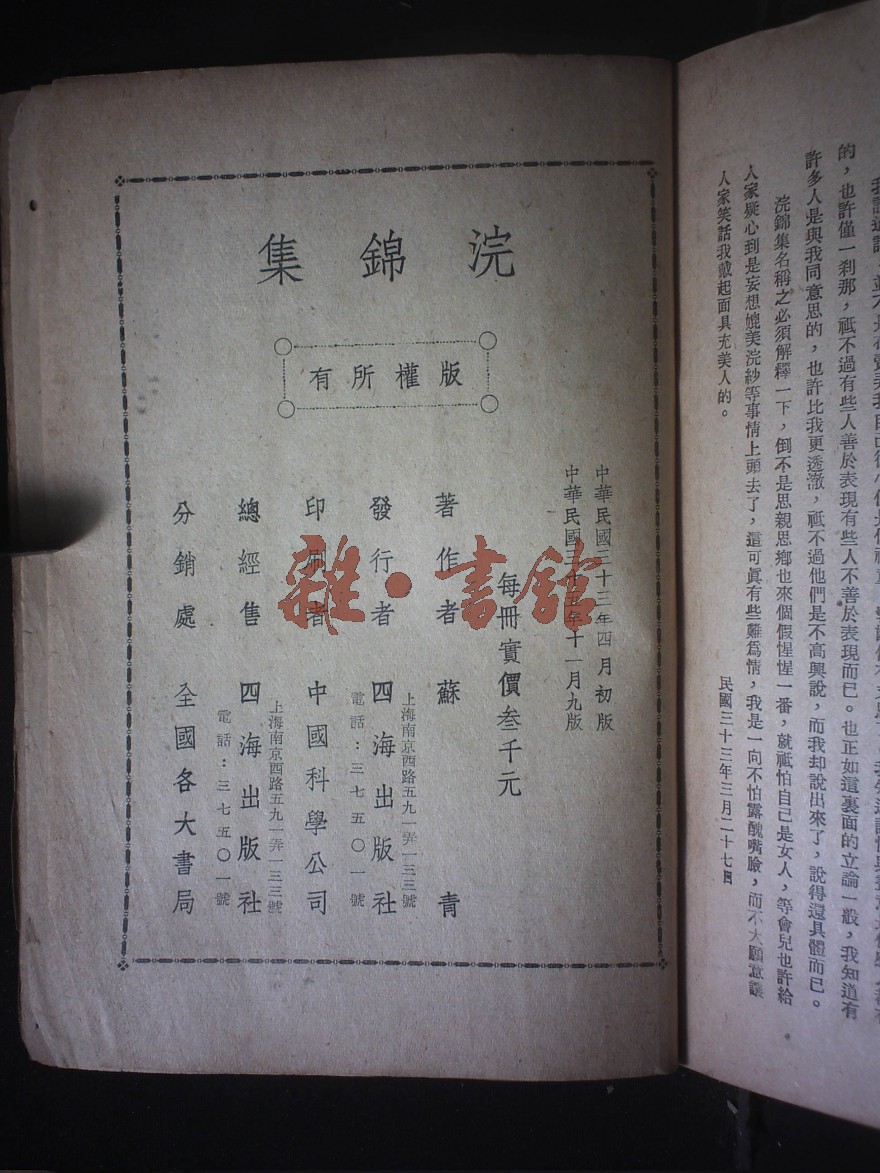 浣錦集
版權所有
中華民國三十三年四月初版
中華民國三十五年十一月九版
每冊實價叁千元
著作者 蘇青
發行者 四海出版社
上海南京西路五九一弄一三三號
電話：三七五〇一號
印刷者 中國科學公司
總經售 四海出版社
上海南京西路五九一弄一三三號
電話：三七五〇一號
分銷處 全國各大書局
雜·書館
的，也許僅一刹那，祗不過有些人善於表現有些人不善於表現而已。也正如這裏面的立論一般，我知道有
許多人是與我同意思的，也許比我更透澈，祗不過他們是不高興說，而我却說出來了，說得還具體而已。
浣錦集名稱之必須解釋一下，倒不是思親思鄉也來個假惺惺一番，就祗怕自己是女人，等會兒也許給
人家疑心到是妄想媲美浣紗等事情上頭去了，這可眞有些難爲情，我是一向不怕露醜嘴臉，而不大願意讓
人家笑話我戴起面具充美人的。
民國三十三年三月二十七日